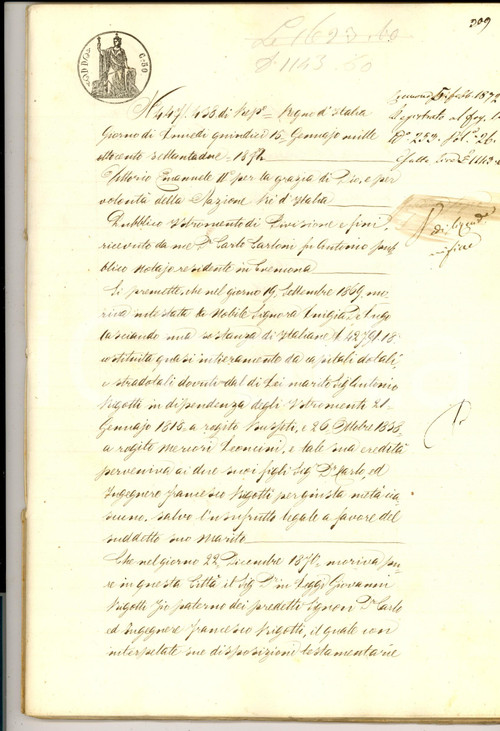 309
L. 1623.60
£ 1143.50
C. 50
N. 447/455 di Rep.° = Regno d'Italia
Giorno di Lunedì quindici 15 Gennajo mille
ottocento settantadue, 1872.
Vittorio Emanuele II° per la grazia di Dio, e per
volontà della Nazione Re d'Italia
Pubblico Istromento di Divisione e fini,
ricevuto da me D.r Carlo Carloni fu Antonio pub
blico Notajo residente in Cremona
Si premette, che nel giorno 19, Settembre 1869, mo
riva intestata la Nobile Signora Luigia
lasciando una sostanza di Italiane £ 42791.18
costituita quasi intieramente da capitali dotali,
e stradotali dovuti dal di Lei marito Sig. Antonio
Rigotti in dipendenza degli Istromenti 21
Gennajo 1815, a rogito Bussoti, e 26 Ottobre 1838,
a rogito Leoncini, e tale sua eredità
perveniva ai due suoi figli Sig. D.r Carlo, ed
Ingegnere Francesco Rigotti per giusta metà cia
scuno, salvo l'usufrutto legale a favore del
suddetto suo Marito
Che nel giorno 22 Dicembre 1870, moriva pu
re in questa Città il Sig. D.r in Leggi Giovanni
Rigotti Zio paterno dei predetti Signori D.r Carlo
ed Ingegnere Francesco Rigotti, il quale con
interpetate sue disposizioni testamentarie